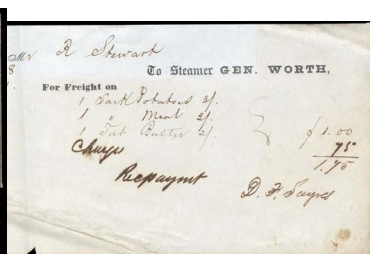 Mr R Stewart
To Steamer GEN. WORTH,
For Freight on
1 Sack Potatoes 2/.
1 " Meal 2/.
1 Tub Butter 2/.
$1.00
Charges 75
1.75
Recpaymt
D. F. Sayre